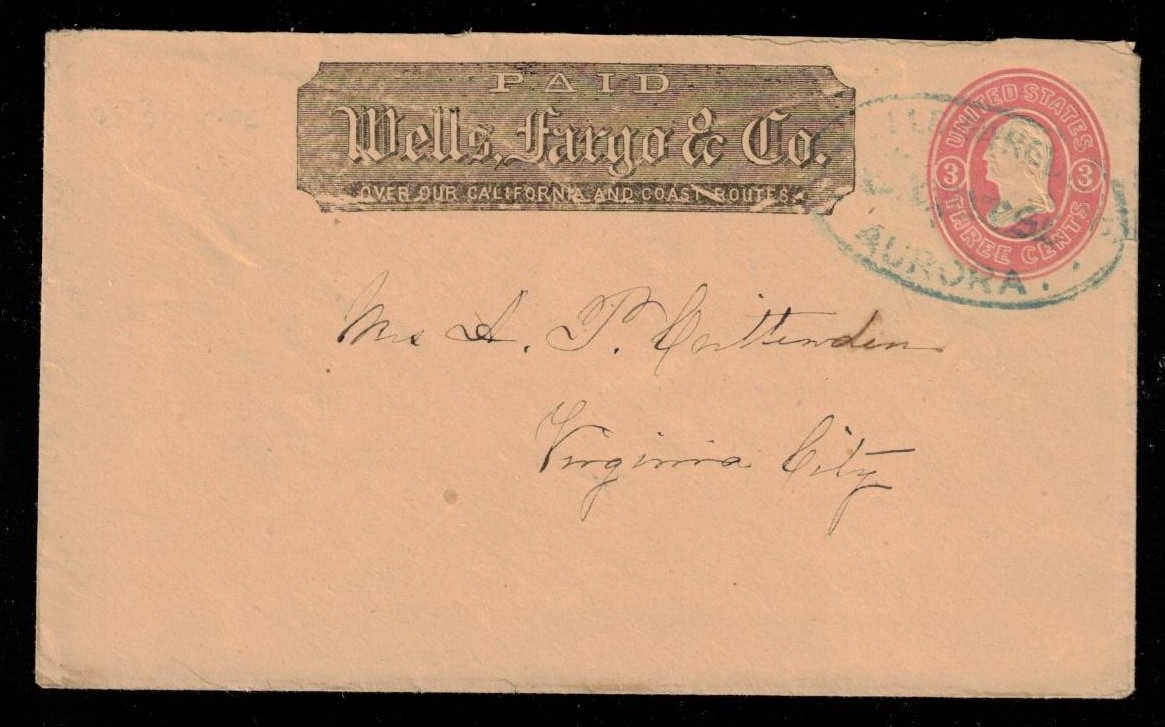 PAID
Wells, Fargo & Co.
OVER OUR CALIFORNIA AND COAST ROUTES.
UNITED STATES
3 3
THREE CENTS
AURORA.
Mrs A. P. Crittenden
Virginia City